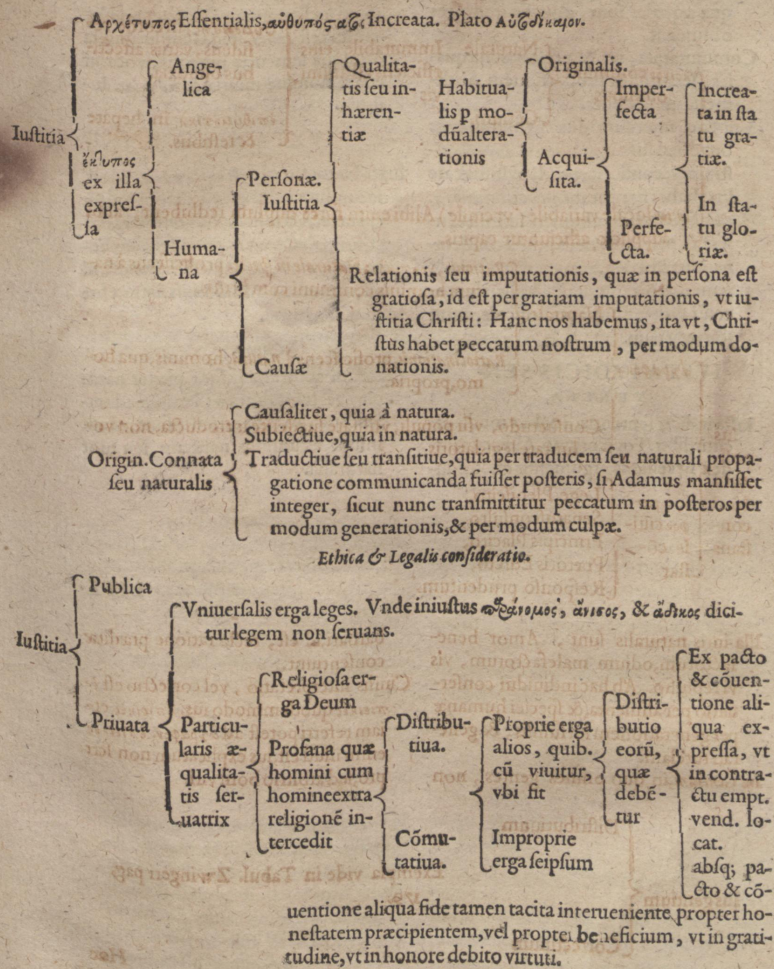 Αρχέτυπος Essentialis, αὐθυπόςαζις Increata. Plato Αὐτοδίκαιον.
Iustitia
ἔκτυπος
ex illa
expres-
sa
Ange-
lica
Huma-
na
Personæ.
Iustitia
Causæ
Qualita-
tis seu in-
hæren-
tiæ
Habitua-
lis p mo-
dũ altera-
tionis
Originalis.
Acqui-
sita.
Imper-
fecta
Perfe-
cta.
Increa-
ta in sta
tu gra-
tiæ.
In sta-
tu glo-
riæ.
Relationis seu imputationis, quæ in persona est
gratiosa, id est per gratiam imputationis, vt iu-
stitia Christi: Hanc nos habemus, ita vt, Chri-
stus habet peccatum nostrum, per modum do-
nationis.
Origin. Connata
seu naturalis
Causaliter, quia à natura.
Subiectiue, quia in natura.
Traductiue seu transitiue, quia per traducem seu naturali propa-
gatione communicanda fuisset posteris, si Adamus mansisset
integer, sicut nunc transmittitur peccatum in posteros per
modum generationis, & per modum culpæ.
Ethica & Legalis consideratio.
Iustitia
Publica
Priuata
Vniuersalis erga leges. Vnde iniustus παράνομος, ἄνισος, & ἄδικος dici-
tur legem non seruans.
Particu-
laris æ-
qualita-
tis ser-
uatrix
Religiosa er-
ga Deum
Profana quæ
homini cum
homine extra
religionẽ in-
tercedit
Distribu-
tiua.
Cõmu-
tatiua.
Proprie erga
alios, quib.
cũ viuitur,
vbi fit
Improprie
erga seipsum
Distri-
butio
eorũ,
quæ
debẽ-
tur
Ex pacto
& cõuen-
tione ali-
qua ex-
pressa, vt
in contra-
ctu empt.
vend. lo-
cat.
absq; pa-
cto & cõ-
uentione aliqua fide tamen tacita interueniente propter ho-
nestatem præcipientem, vel propter beneficium, vt in grati-
tudine, vt in honore debito virtuti.